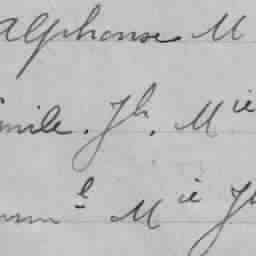 Alphonse M
mile. Jh. Mie
Mie Jh